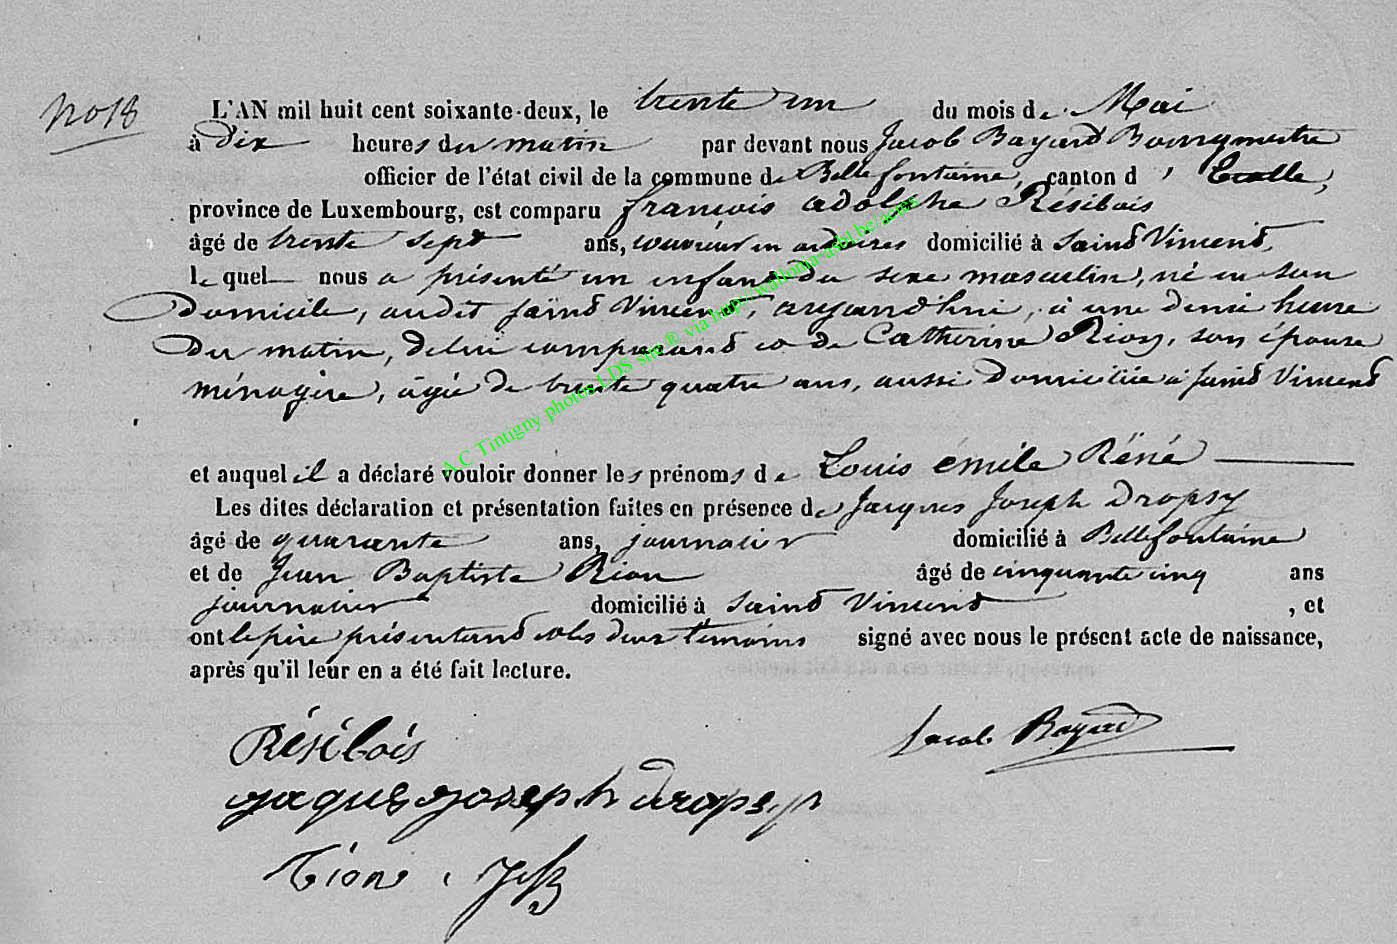 No 18
L'AN mil huit cent soixante-deux, le trente un du mois de Mai
à dix heures du matin par devant nous Jacob Bayard Bourgmestre
officier de l'état civil de la commune de Bellefontaine, canton d'Etalle,
province de Luxembourg, est comparu françois adolphe Résibois
âgé de trente sept ans, ouvrier en ardoires domicilié à Saind Vincend,
lequel nous a présenté un enfand du sexe masculin, né en son
domicile, audit Saind Vincend, aujourd'hui, à une demie heure
du matin, de lui comparand et de Catherine Rion, son épouse
ménagère, agée de trente quatre ans, aussi domiciliée à Saind Vincend
A.C Tintigny photos LDS site ® via http://wallonia-asbl.be/actes
et auquel il a déclaré vouloir donner les prénoms de Louis émile Réné
Les dites déclaration et présentation faites en présence de Jacques Joseph Dropsy
âgé de quarante ans, journalier domicilié à Bellefontaine
et de Jean Baptiste Rion âgé de cinquante cinq ans
journalier domicilié à Saind Vincend, et
ont le père présentand et les deux témoins signé avec nous le présent acte de naissance,
après qu'il leur en a été fait lecture.
Résibois Jacob Bayard
jaque joseph dropsy
Rion J B